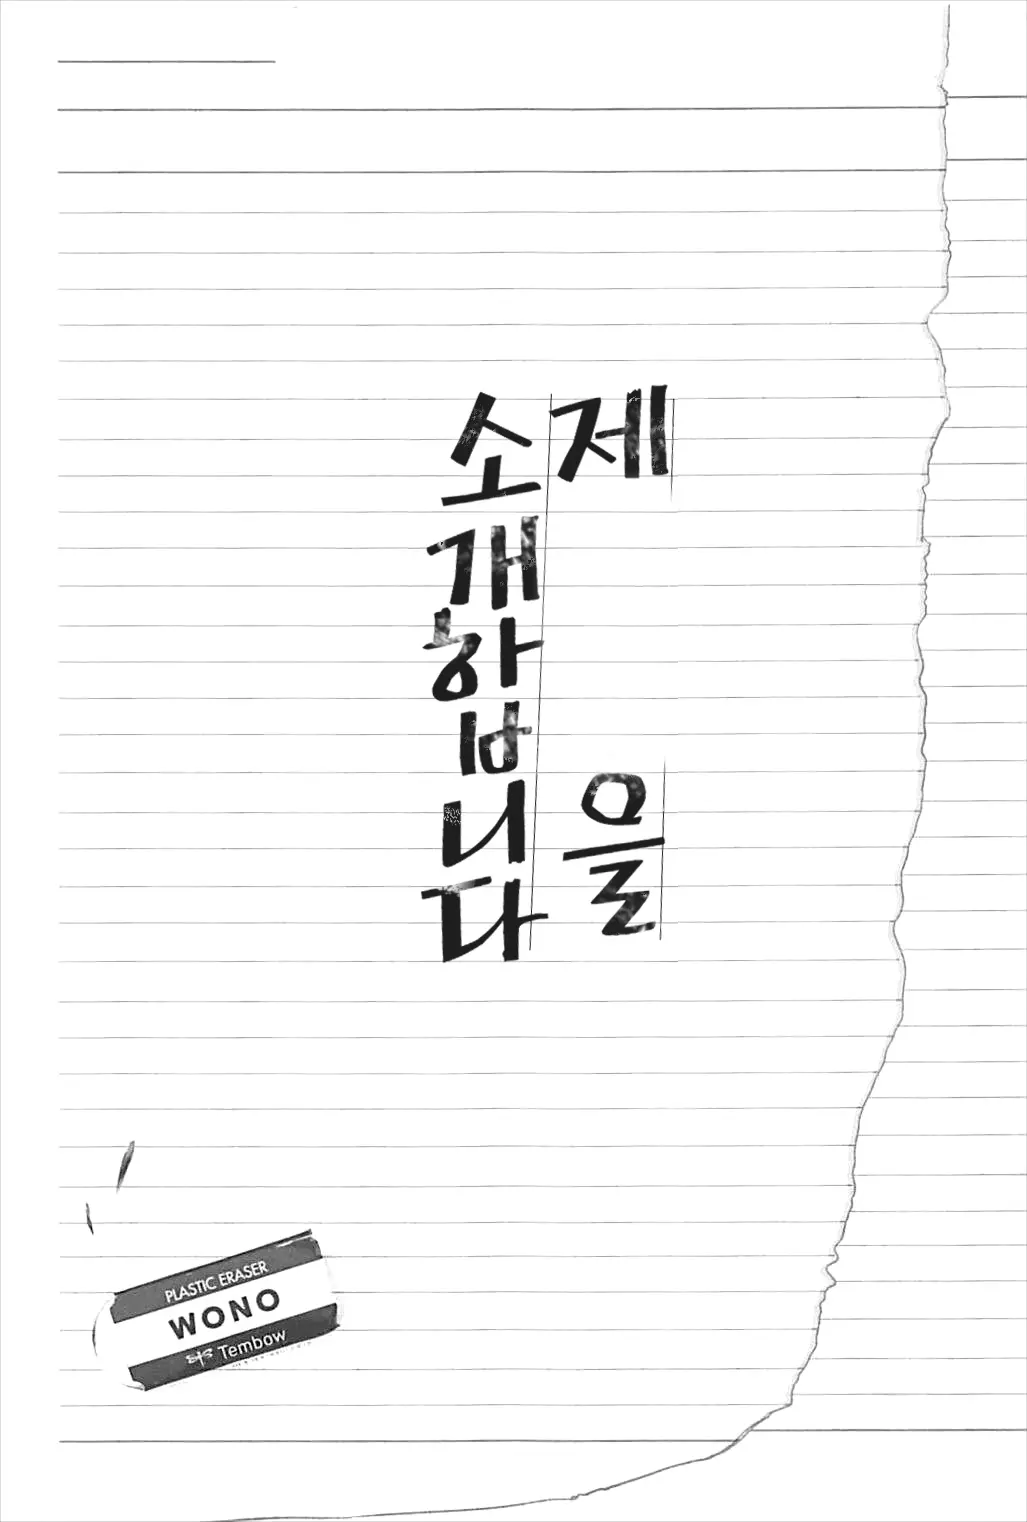 제 을
소개합니다
PLASTIC ERASER
WONO
Tembow